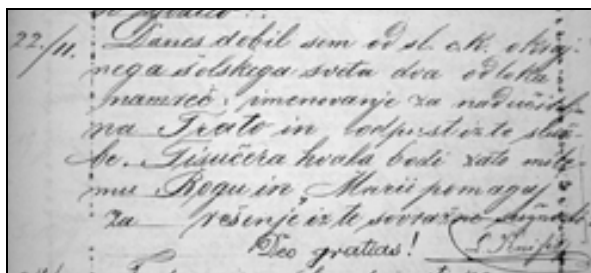 22./11. Danes dobil sem od sl. c.k. okraj-
nega šolskega sveta dva odloka
namreč: imenovanje za nadučitelja
na Trato in odpust iz te služ-
be. Tisučera hvala bodi zato milo-
mu Bogu in "Marii pomagaj"
za rešenje iz te sovražne
Deo gratias!